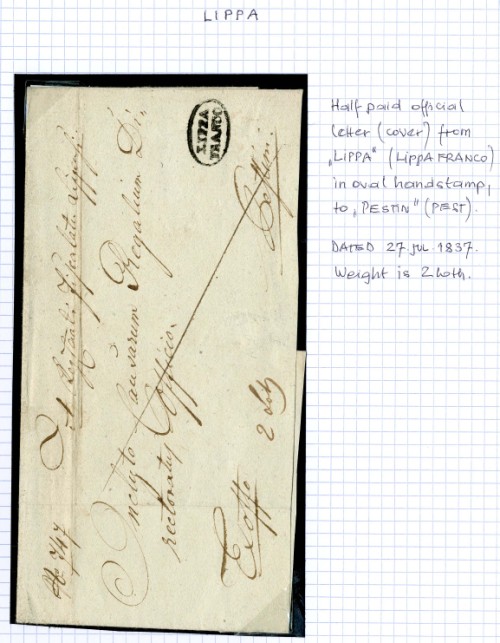 LIPPA
LIPPA
FRANCO
Inclyto Causarum Regalium Di,
rectoratus Officio.
Pestini
Ex offo
2 Loth
No 747
Half paid official
letter (cover) from
„LIPPA" (LIPPA FRANCO)
in oval handstamp,
to „PESTIN" (PEST).
DATED 27 JUL 1837.
Weight is 2 Loth.